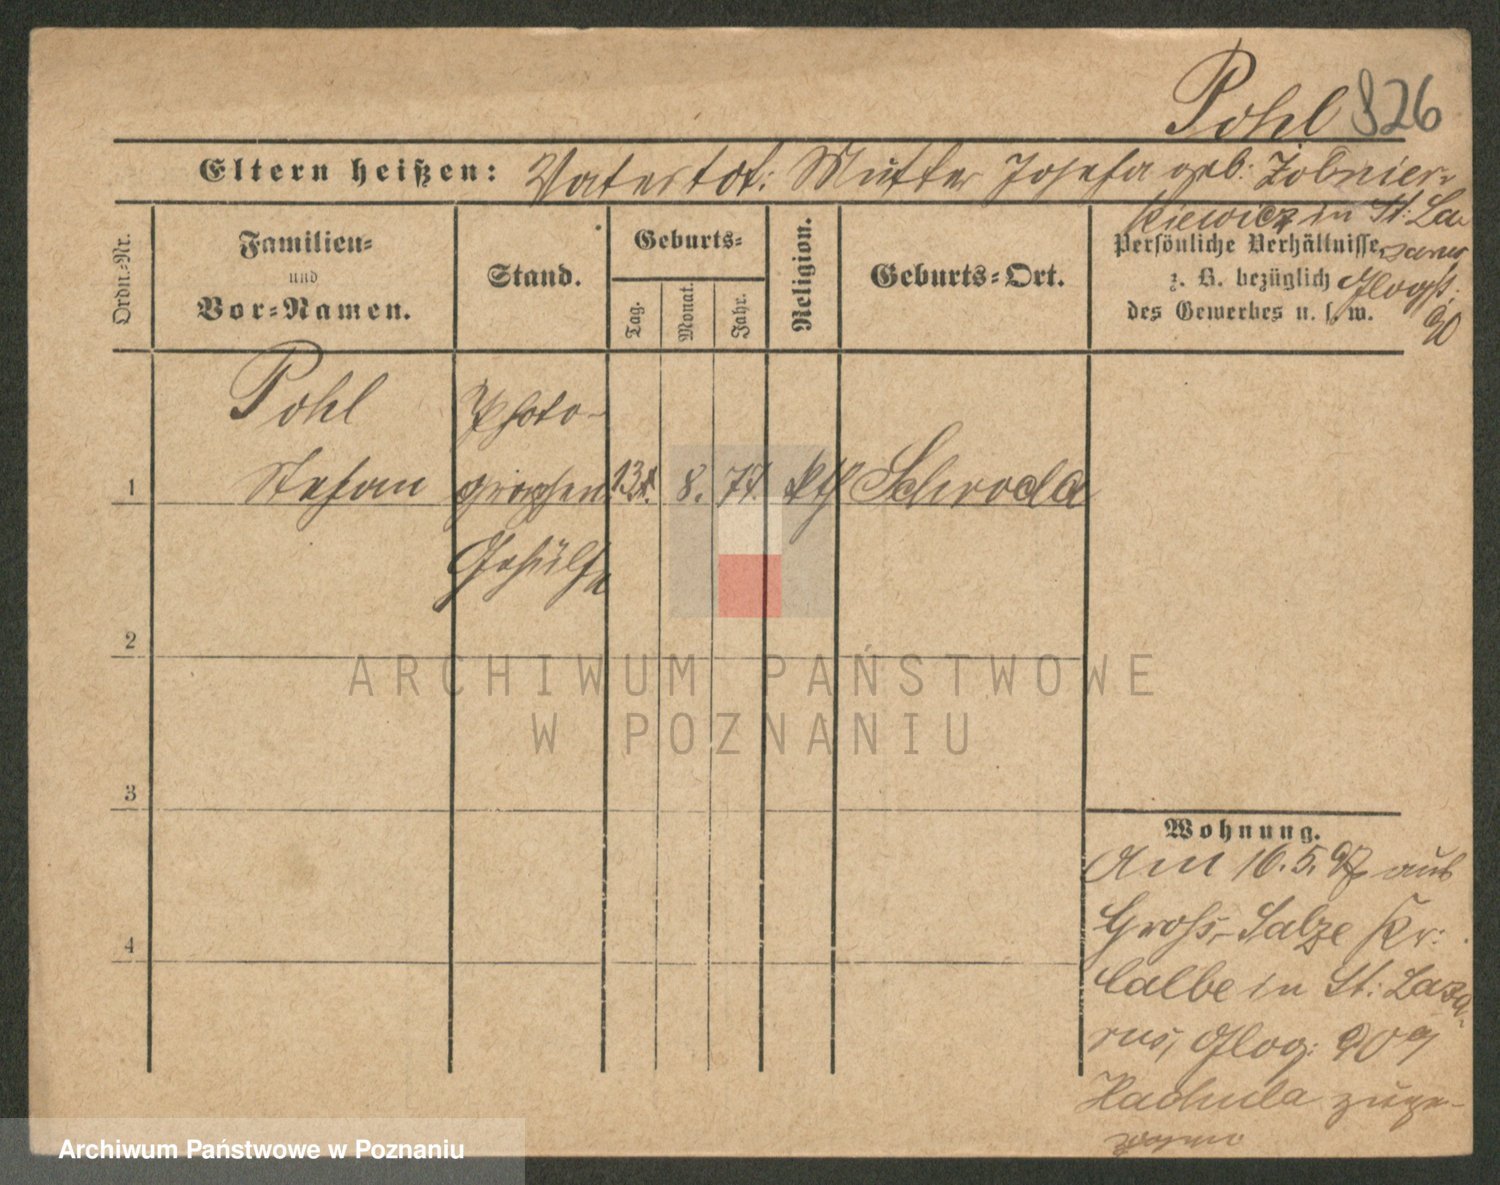 Pohl 826
Eltern heißen: Vater tot: Mutter Josefa geb: Zobnier-
kiewicz in St: La-
zarus
Glog.
90
Ordn.-Nr.
Familien-
und
Vor-Namen.
Stand.
Geburts-
Tag.
Monat.
Jahr.
Religion.
Geburts-Ort.
Persönliche Verhältnisse,
z. B. bezüglich
des Gewerbes u. s. w.
Pohl Photo-
1 Stefan graphen 13. 8. 77. kth Schroda
Gehülfe
2
3
4
Wohnung.
Am 16.5.97 aus
Groß-Salze Kr:
Calbe in St: Laza-
rus, Glog: 909
Hadula zuge-
zogen
ARCHIWUM PAŃSTWOWE
W POZNANIU
Archiwum Państwowe w Poznaniu